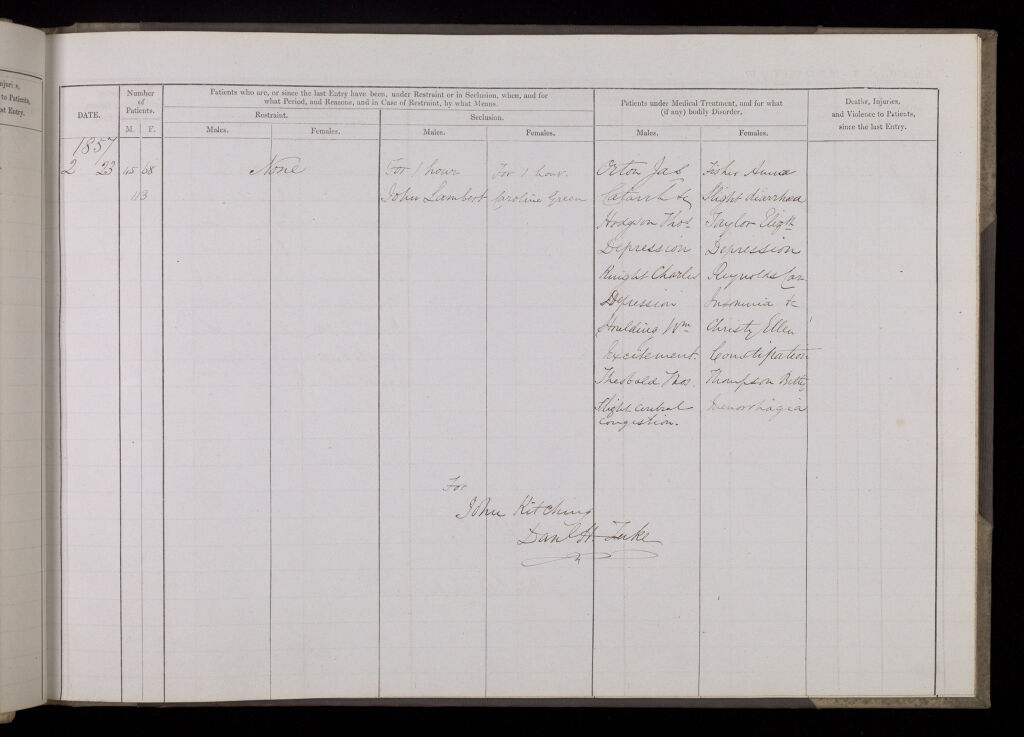 njuries,
to Patients,
st Entry.
DATE.
Number
of
Patients.
M. F.
Patients who are, or since the last Entry have been, under Restraint or in Seclusion, when, and for
what Period, and Reasons, and in Case of Restraint, by what Means.
Restraint.
Males. Females.
Seclusion.
Males. Females.
Patients under Medical Treatment, and for what
(if any) bodily Disorder.
Males. Females.
Deaths, Injuries,
and Violence to Patients,
since the last Entry.
1857
2 23 45 68 None For 1 hour For 1 hour. Orton Jas Fisher Anna
113 John Lambert Caroline Green Catarrh &c Slight diarrhœa
Hodgson Thos. Taylor Elizth
Depression Depression
Knight Charles Reynolds Car
Depression Insomnia &c
Houlding Wm Christy Ellen
Excitement. Constipation
Theobald Thos. Thompson Betty
Slight cerebral Menorrhagia
congestion.
For
John Kitching
Danl H. Tuke